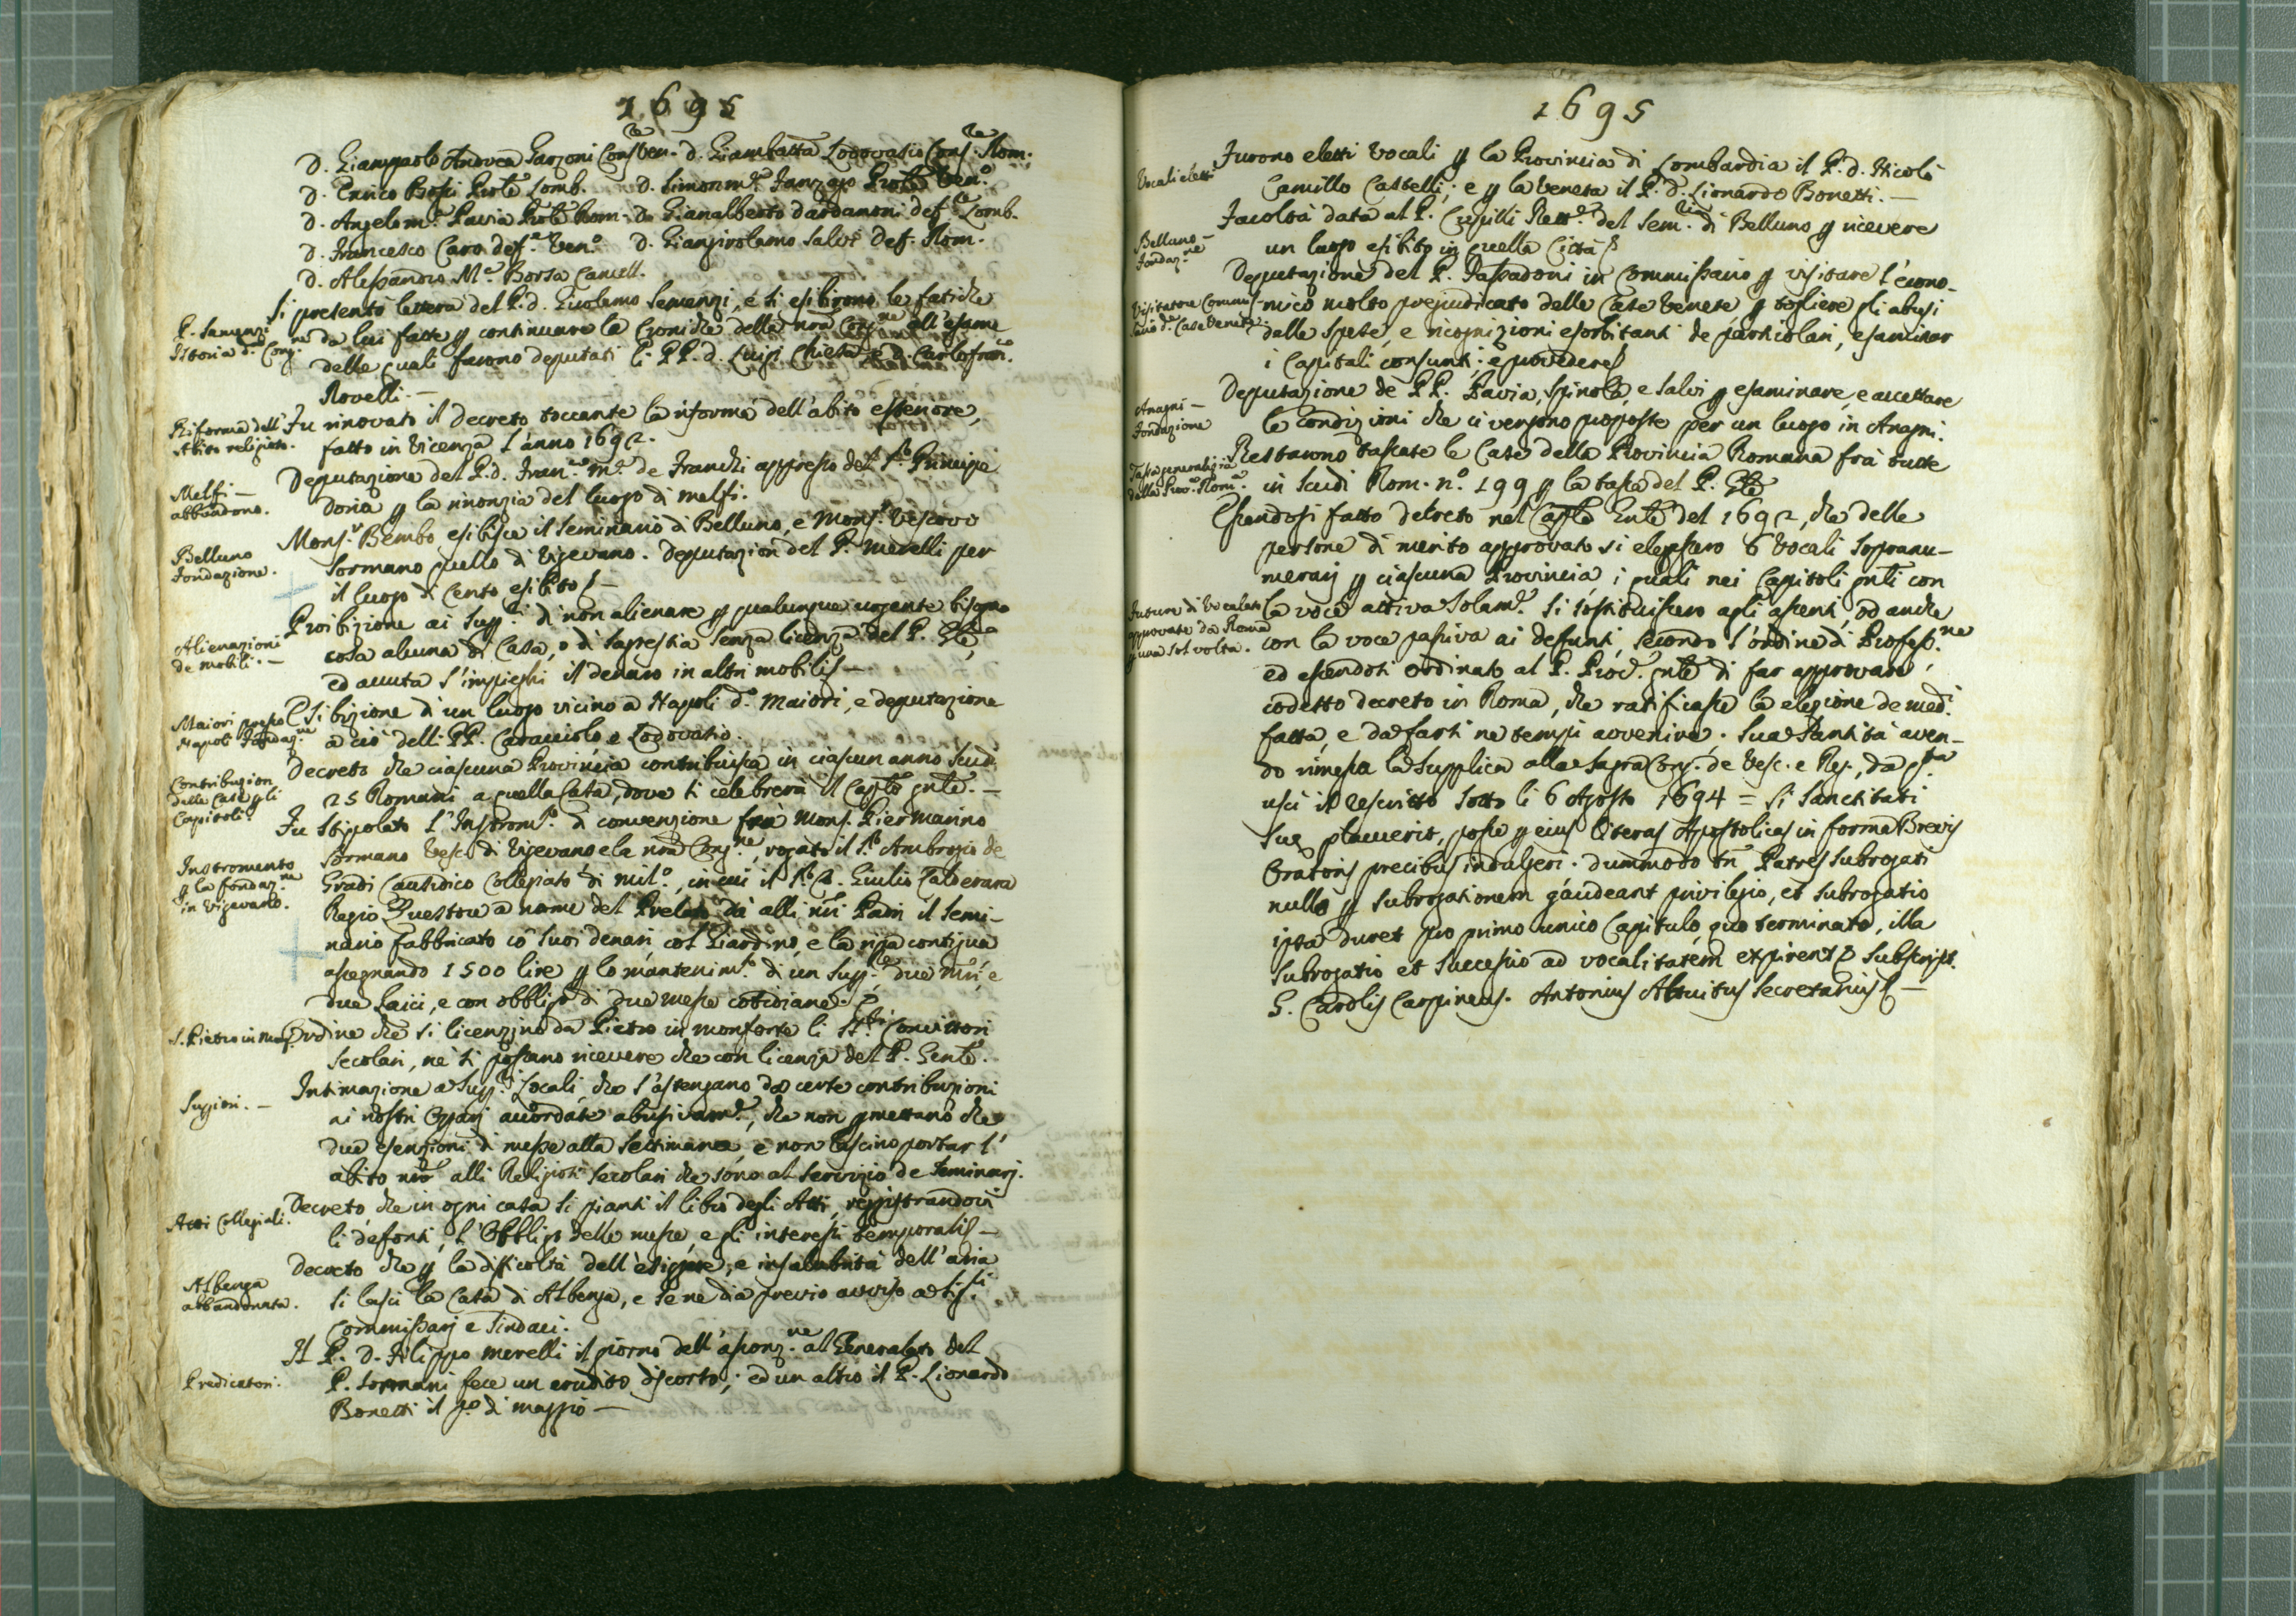 1695
D. Giampaolo Andrea Garzoni Cons.re Ven. D. Giambatta Lodovasio Cons.re Rom.
D. Enrico Bossi Prole Lomb. D. Simonm.a Franzago Prole Ven.o
D. Angelom.a Pavia Prole Rom. D. Gianalberto Dardanoni Def.e Lomb.
D. Francesco Caro Def.e Ven.o D. Giangirolamo Salvi Def. Rom.
D. Alessandro M.a Borsa Cancell.
Si presentò lettera del P. d. Girolamo Semenzi, e si esibirono le fatiche
P. Semenzi
Istoria d. Cong.ne
da lui fatte p continuare la Croniche della nra Cong.ne all'esame
delle quali furono deputati li PP. d. Luigi Chiesa e D. Carlofran.co
Rovelli. —
Riforma dell'
Abito religioso.
Fu rinovato il decreto toccante la riforma dell'abito esteriore,
fatto in Vicenza l'anno 1692.
Melfi —
abbandono.
Deputazione del P. d. Fran.co M.a de Franchi appresso del S.r Principe
Doria p la rinonzia del luogo di Melfi.
Belluno
Fondazione.
Mons.r Bembo esibisce il Seminario di Belluno, e Mons.r Vescovo
Sormano quello di Vigevano. Deputazion del P. Merelli per
il luogo di Cento esibito —
Alienazioni
de mobili. —
Proibizione ai Sup.ri di non alienare p qualunque urgente bisogno
cosa alcuna di Casa, o di Sagrestia senza licenza del P. Gle,
ed avuta s'impieghi il denaro in altri mobili —
Maiori presso
Napoli Fondaz.ne
Esibizione di un luogo vicino a Napoli d.o Maiori, e deputazione
a ciò delli PP. Caracciolo e Lodovasio.
Contribuzion
delle Case p li
Capitoli
Decreto che ciascuna Provincia contribuisca in ciascun anno Scudi
25 Romani a quella Casa, dove si celebrerà il Caplo gnle. —
Instromento
p la fondaz.ne
in Vigevano.
Fu Stipolato l'Instrom.to di convenzione frà Mons. Piermarino
Sormano Vesc.o di Vigevano e la nra Cong.ne, rogato il S.r Ambrogio de
Gradi Causidico Collegiato di Mil.o, in cui il S.r D. Giulio Calderara
Regio Questore a nome del Prelato dà alli nri Padri il Semi-
nario fabbricato cõ suoi denari col Giardino, e la ripa contigua
assegnando 1500 lire p lo mantenim.to di un Sup.re due mri, e
due Laici, e con obbligo di due messe cotidiane.
S. Pietro in Monf.
Ordine che si licenzino da Pietro in Monforte li SS.ri Convittori
secolari, nè si possano ricevere che con licenza del P. Genle.
Sup.iori. —
Intimazione a Sup.ri Locali, che s'astengano da certe contribuzioni
ai nostri Opparj accordate abusivam.e, che non pmettano che
due esenzioni di messe alla Settimana, e non lascino portar l'
abito nro alli Religiosi Secolari che sono al servizio de Seminarj.
Atti Collegiali.
Decreto, che in ogni casa si pianti il libro degli Atti, reggistrandovi
li defonti, l'Obbligo delle messe, e gli interessi temporali —
Albenga
abbandonata.
Decreto che p la difficoltà dell'esiggere, e insalubrità dell'aria
si lasci la Casa di Albenga, e se ne dia previo avviso a SS.ri
Commissarj e Sindaci.
Predicatori.
Il P. D. Filippo Merelli il giorno dell'assonz.ne al Generalato del
P. Sormani fece un erudito discorso; ed un altro il P. Lionardo
Bonetti il p.o di maggio —
1695
Vocali eletti
Furono eletti Vocali p la Provincia di Lombardia il P. d. Nicolò
Camillo Castelli; e p la Veneta il P. D. Lionardo Bonetti. —
Belluno —
Fondaz.ne
Facoltà data al P. Crepilli Rett.e del Sem.rio di Belluno p ricevere
un luogo esibito in quella Città
Deputazione del P. Passadoni in Commissario p visitare l'econo-
Visitatore Commis-
sario d.e Case Venete.
mico molto pregiudicato delle Case Venete p togliere gli abusi
dalle Spese, e ricognizioni esorbitanti de particolari, esaminar
i Capitali consunti; e provedere
Anagni —
Fondazione
Deputazione de PP. Pavia, Spinola, e Salvi p esaminare, e accettare
le condizioni che ci vengono proposte per un luogo in Anagni.
Tassa generalizia
della Prov.a Rom.a
Restarono tassate le Case della Provincia Romana frà tutte
in Scudi Rom. n.o 199 p la tassa del P. Gle
Essendosi fatto decreto nel Caplo Gnle del 1692, che delle
persone di merito approvato si elessero 6 Vocali Sopranu-
merarj p ciascuna Provincia, i quali nei Capitoli gnli con
Future di Vocalato
approvate da Roma
p una sol volta.
la voce attiva solam.e si sostituissero agli assenti, ed anche
con la voce passiva ai defunti, secondo l'ordine di Profess.ne
ed essendosi Ordinato al P. Proc.r gnle di far approvare
codesto decreto in Roma, che ratificasse la elezione de med.i
fatta, e da farsi ne tempi avvenire. Sua Santità aven-
do rimessa la Supplica alla Sagra Cong. de Vesc. e Reg., da q.sta
uscì il rescritto Sotto li 6 Agosto 1694 = Si Sanctitati
Suę placuerit, posse p eius literas Apostolicas in forma Brevis
Oratoris precibus indulgeri. Dummodo tñ Patres Subrogati
nullo p subrogationem gaudeant privilegio, et subrogatio
ipsa duret pro primo unico Capitulo, quo terminato, illa
Subrogatio et Successio ad vocalitatem expirent Subscript.
G. Card.lis Carpineus. Antonius Altuitus Secretarius —